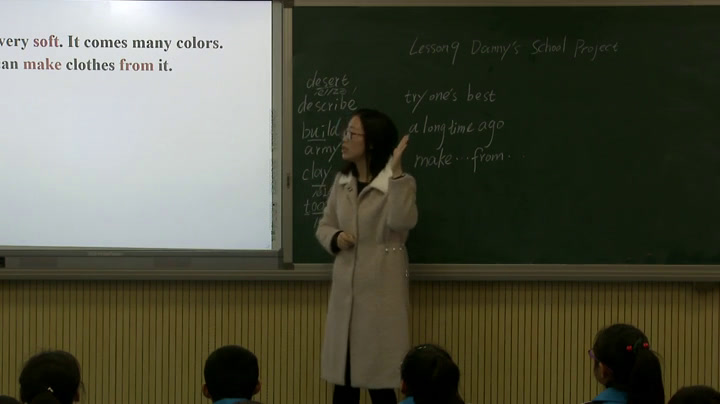 very soft. It comes many colors.
an make clothes from it.
Lesson9 Danny's School Project
desert
describe
build
army
clay
try one's best
a long time ago
make...from...